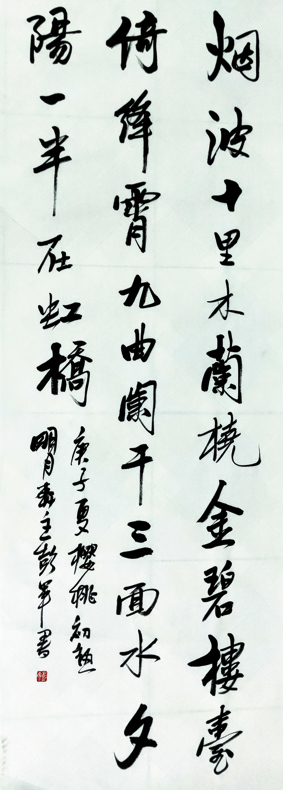 烟波十里木蘭橈金碧樓臺
倚絳霄九曲闌干三面水夕
陽一半在虹橋
庚子夏櫻桃初熟
明月主彭年書